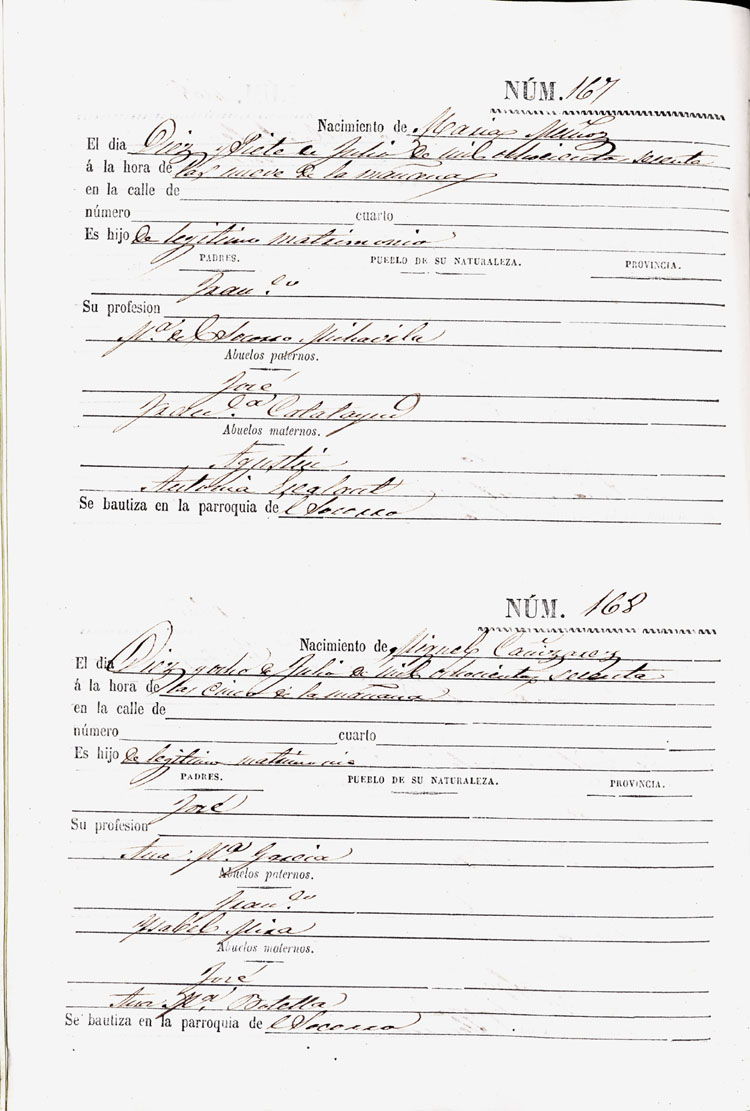 NÚM. 167
Nacimiento de Maria Muñoz
El dia Diez y Siete de Julio de mil ochocientos sesenta
á la hora de las nueve de la mañana
en la calle de
número cuarto
Es hijo de legitimo matrimonio
PADRES. PUEBLO DE SU NATURALEZA. PROVINCIA.
Fran.co
Su profesion
M.a del Socorro Mihavila
Abuelos paternos.
José
Fran.ca Calatayud
Abuelos maternos.
Agustin
Antonia
Se bautiza en la parroquia de el Socorro
NÚM. 168
Nacimiento de Miguel Cañizares
El dia Diez y ocho de Julio de mil ochocientos sesenta
á la hora de las cinco de la mañana
en la calle de
número cuarto
Es hijo de legitimo matrimonio
PADRES. PUEBLO DE SU NATURALEZA. PROVINCIA.
José
Su profesion
Ana M.a Garcia
Abuelos paternos.
Fran.co
Ysabel Mira
Abuelos maternos.
José
Ana M.a Botella
Se bautiza en la parroquia de el Socorro